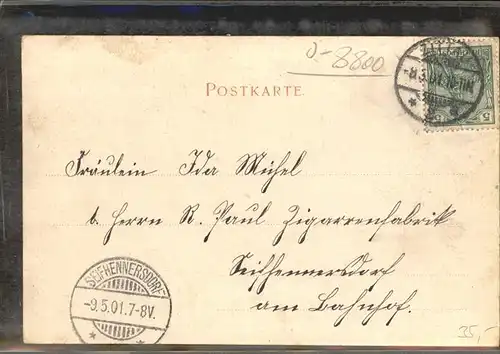 0-8800
ZITTAU
-8.5.01.10-11N.
5
POSTKARTE.
Fräulein Ida Michel
b. Herrn R. Paul Zigarrenfabrik
Seifhennersdorf
am Bahnhof.
SEIFHENNERSDORF
-9.5.01.7-8V.
35,-